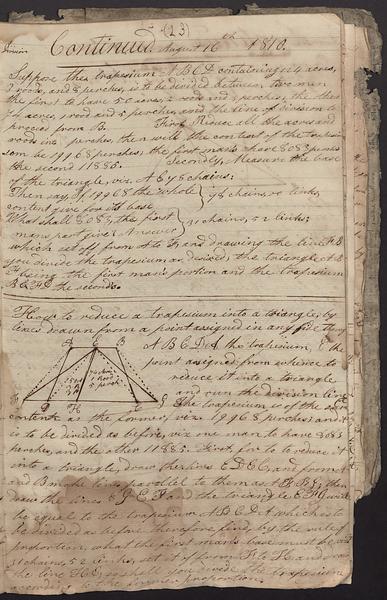 (23)
Continued. August 16th 1810.
Suppose the trapesium A B C D containing 124 acres,
3 roods, and 8 perches, is to be divided between two men,
the first to have 50 acres, 2 roods and 3 perches, the other
74 acres, 1 rood and 5 perches, and the line of division to
proceed from B. First, Reduce all the acres and
roods into perches, then will the content of the trapesi
um be 19968 perches, the first man's share 8083 perches
the second 11885. Secondly, Measure the base
of the triangle, viz. A E 78 chains:
Then say, If 19968 the whole
content give for its base 78 chains, 00 links,
What shall 8083, the first
man's part give? Answer 31 chains, 52 links;
which set off from A to F, and drawing the line F B
you divide the trapesium as desired, the triangle A B
F being the first man's portion and the trapesium
B C F D the second.
How to reduce a trapesium into a triangle, by
lines drawn from a point assigned in any side thereof
A B C D is the trapesium, E the
point assigned, from whence to
reduce it into a triangle
and run the division line
The trapesium is of the same
A E B
F D H C G
content as the former, viz. 19968 perches; and it
is to be divided as before, viz. one man to have 8083
perches, and the other 11885. First, for to reduce it
into a triangle, draw the lines E D & E C, and from A
and B make lines parallel to them as A F & B G; then
draw the lines E G, E F and the triangle E F G will
be equal to the trapesium A B C D, which is to
be divided as before. Therefore find, by the rule of
proportion, what the first man's base must be, viz.
31 chains, 52 links, set it off from F to H and draw
the line H E, so shall you divide the trapesium
according to the former proportion.